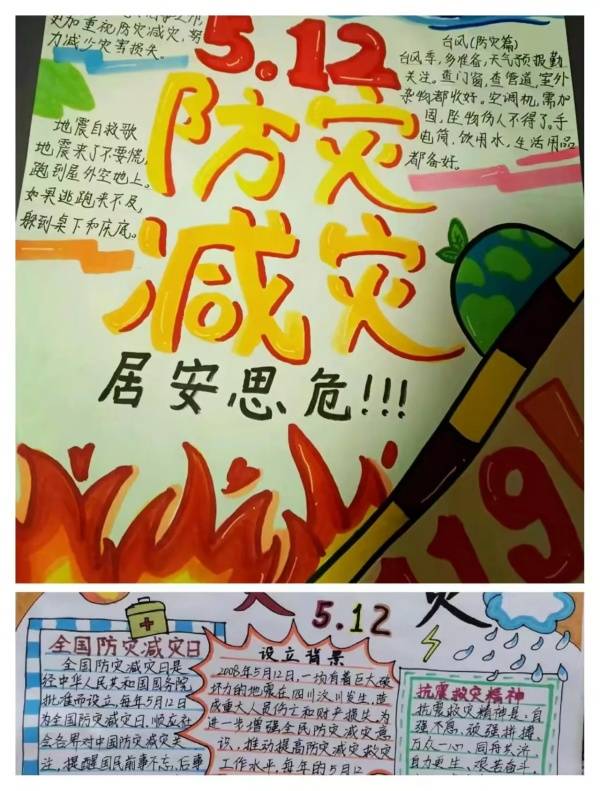 更加重视防灾减灾,努
力减少灾害损失。
5.12
防灾
减灾
居安思危!!!
地震自救歌
地震来了不要慌,
跑到屋外空地上。
如果逃跑来不及,
躲到桌下和床底。
台风(防灾篇)
台风季,多准备,天气预报勤
关注。查门窗,查管道,室外
杂物都收好。空调机,需加
固,坠物伤人不得了。手
电筒、饮用水,生活用品
都备好。
119
5.12
灾
全国防灾减灾日
全国防灾减灾日是
经中华人民共和国国务院
批准而设立,每年5月12日
为全国防灾减灾日,顺应社
会各界对中国防灾减灾关
注,提醒国民前事不忘,后事
设立背景
2008年5月12日,一场有着巨大破
坏力的地震在四川汶川发生,造
成重大人员伤亡和财产损失,为
进一步增强全民防灾减灾意
识,推动提高防灾减灾救灾
工作水平,每年的5月12
抗震救灾精神
抗震救灾精神是:自
强不息、顽强拼搏、
万众一心、同舟共济、
自力更生、艰苦奋斗,